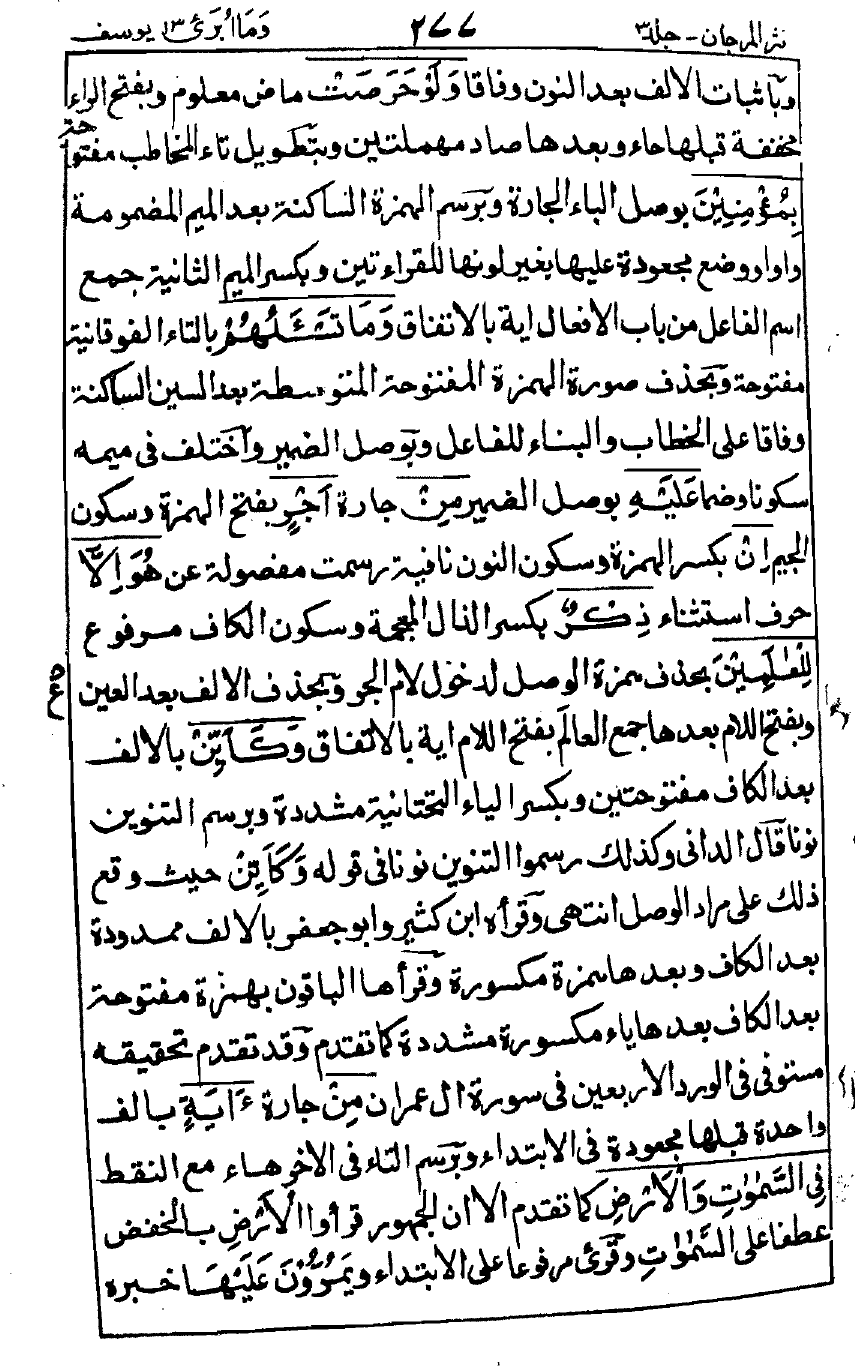 نثر المرجان - جلد ٣ ٢٧٧ وَمَا اُبَرِّئُ ١٣ يوسف
وبآثبات الالف بعد النون وفاقا وَلَوْ حَرَصْتَ ماض معلوم وبفتح الراء
مخففة قبلها حاء وبعدها صاد مهملتين وبتطويل تاء المخاطب مفتوحة
بِمُؤْمِنِيْنَ بوصل الباء الجارة وبرسم الهمزة الساكنة بعد الميم المضمومة
واوا ووضع مجعودة عليها بغير لونها للقراءتين وبكسر الميم الثانية جمع
اسم الفاعل من باب الافعال اية بالاتفاق وَمَا تَسْـَٔلُهُمْ بالتاء الفوقانية
مفتوحة وبحذف صورة الهمزة المفتوحة المتوسطة بعد السين الساكنة
وفاقا على الخطاب والبناء للفاعل وبوصل الضمير واختلف فى ميمه
سكونا وضما عَلَيْهِ بوصل الضمير مِنْ جارة اَجْرٍ بفتح الهمزة وسكون
الجيم اِنْ بكسر الهمزة وسكون النون نافية رسمت مفصولة عن هُوَ اِلَّا
حرف استثناء ذِكْرٌ بكسر الذال المعجمة وسكون الكاف مرفوع
لِلْعٰلَمِيْنَ بحذف همزة الوصل لدخول لام الجر وبحذف الالف بعد العين
ع
وبفتح اللام بعدها جمع العالَم بفتح اللام اية بالاتفاق وَكَاَيِّنْ بالالف
بعد الكاف مفتوحتين وبكسر الياء التحتانية مشددة وبرسم التنوين
نونا قال الدانى وكذلك رسموا التنوين نونا فى قوله وَكَاَيِّنْ حيث وقع
ذلك على مراد الوصل انتهى وقرأه ابن كثير وابو جعفر بالالف ممدودة
بعد الكاف وبعدها همزة مكسورة وقرأها الباقون بهمزة مفتوحة
بعد الكاف بعدها ياء مكسورة مشددة كما تقدم وقد تقدم تحقيقه
مستوفى فى الورد الاربعين فى سورة ال عمران مِنْ جارة ءَايَةٍ بالف
واحدة قبلها مجعودة فى الابتداء وبرسم التاء فى الاخر هاء مع النقط
فِى السَّمٰوٰتِ وَالْاَرْضِ كما تقدم الا ان الجمهور قرأوا الْاَرْضِ بالخفض
عطفا على السَّمٰوٰتِ وقرئ مرفوعا على الابتداء ويَمُرُّوْنَ عَلَيْهَا خبره